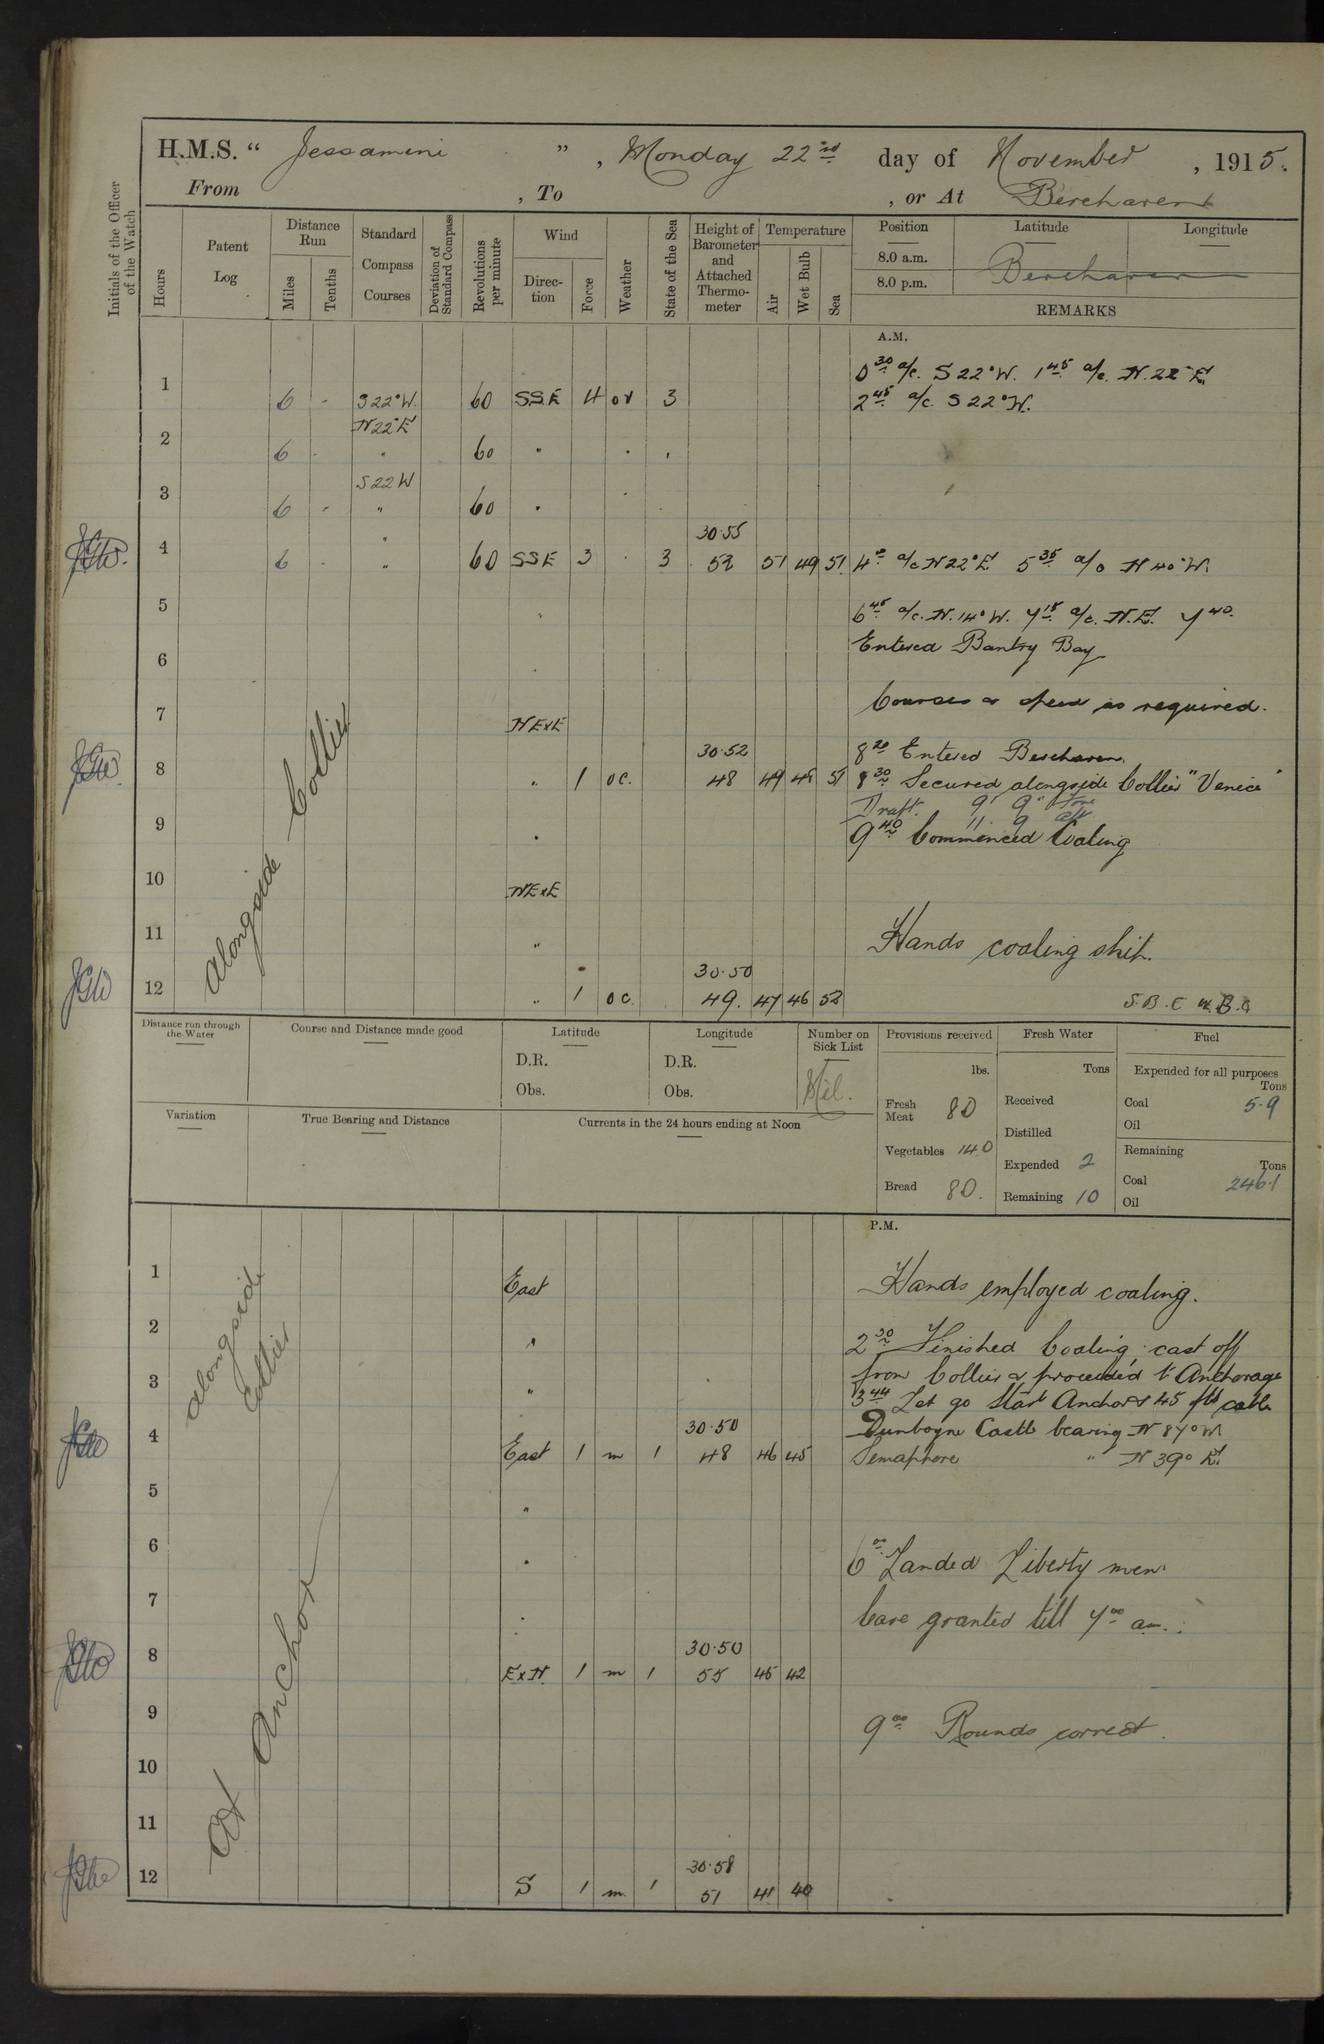 H.M.S. " Jessamine " , Monday 22nd day of November , 1915.
From , To , or At Berehaven
Initials of the Officer of the Watch
Hours
Patent Log
Distance Run
Miles
Tenths
Standard Compass Courses
Deviation of Standard Compass
Revolutions per minute
Wind
Direc- tion
Force
Weather
State of the Sea
Height of Barometer and Attached Thermo- meter
Temperature
Air
Wet Bulb
Sea
Position Latitude Longitude
8.0 a.m.
8.0 p.m. Berehaven
REMARKS
A.M.
0 30 a/c. S 22° W. 1 45 a/c. N. 22° E.
1
6 - S 22° W. 60 SSE 4 or 3
2 45 a/c. S 22° W.
N 22° E
2
6 . " 60 " . ,
S 22 W
3
6 - " 60 "
" 30.55
4
6 . " 60 SSE 3 . 3 52 51 49 51 4 0 a/c N 22° E 5 35 a/c N 40° W.
5
6 45 a/c. N. 14° W. 7 15 a/c. N.E. 7 40
6
Entered Bantry Bay
7
Courses & speed as required.
NExE
30.52 8 20 Entered Berehaven
8
" 1 oc. 48 49 48 51 8 30 Secured alongside Collier "Venice"
Draft. 9' 9" fore
11 9 aft
9
" 9 40 Commenced Coaling
10
NExE
11
" Hands coaling ship.
30.50
12
" 1 oc. 49. 47 46 52
alongside Collier
Distance run through the Water
Course and Distance made good
Latitude
D.R.
Obs.
Longitude
D.R.
Obs.
Number on Sick List
Nil.
Variation
True Bearing and Distance
Currents in the 24 hours ending at Noon
Provisions received
lbs.
Fresh Meat 80
Vegetables 140
Bread 80.
Fresh Water
Tons
Received
Distilled
Expended 2
Remaining 10
Fuel
Expended for all purposes
Tons
Coal 5.9
Oil
Remaining
Tons
Coal 246.1
Oil
P.M.
1
East Hands employed coaling.
2
" 2 30 Finished Coaling, cast off
3
from Collier & proceeded to Anchorage
" 3 44 Let go Star Anchor 45 fth cable
4
30.50 Dunboyne Castle bearing N 87° W
East 1 m 1 48 46 45 Semaphore " N 39° E.
alongside Collier
5
"
6
" 6 00 Landed Liberty men
7
" leave granted till 7 00 am.
8
30.50
ExN. 1 m 1 55 45 42
9
9 00 Rounds correct.
10
11
12
30.58
S 1 m 1 51 41 40
At Anchor